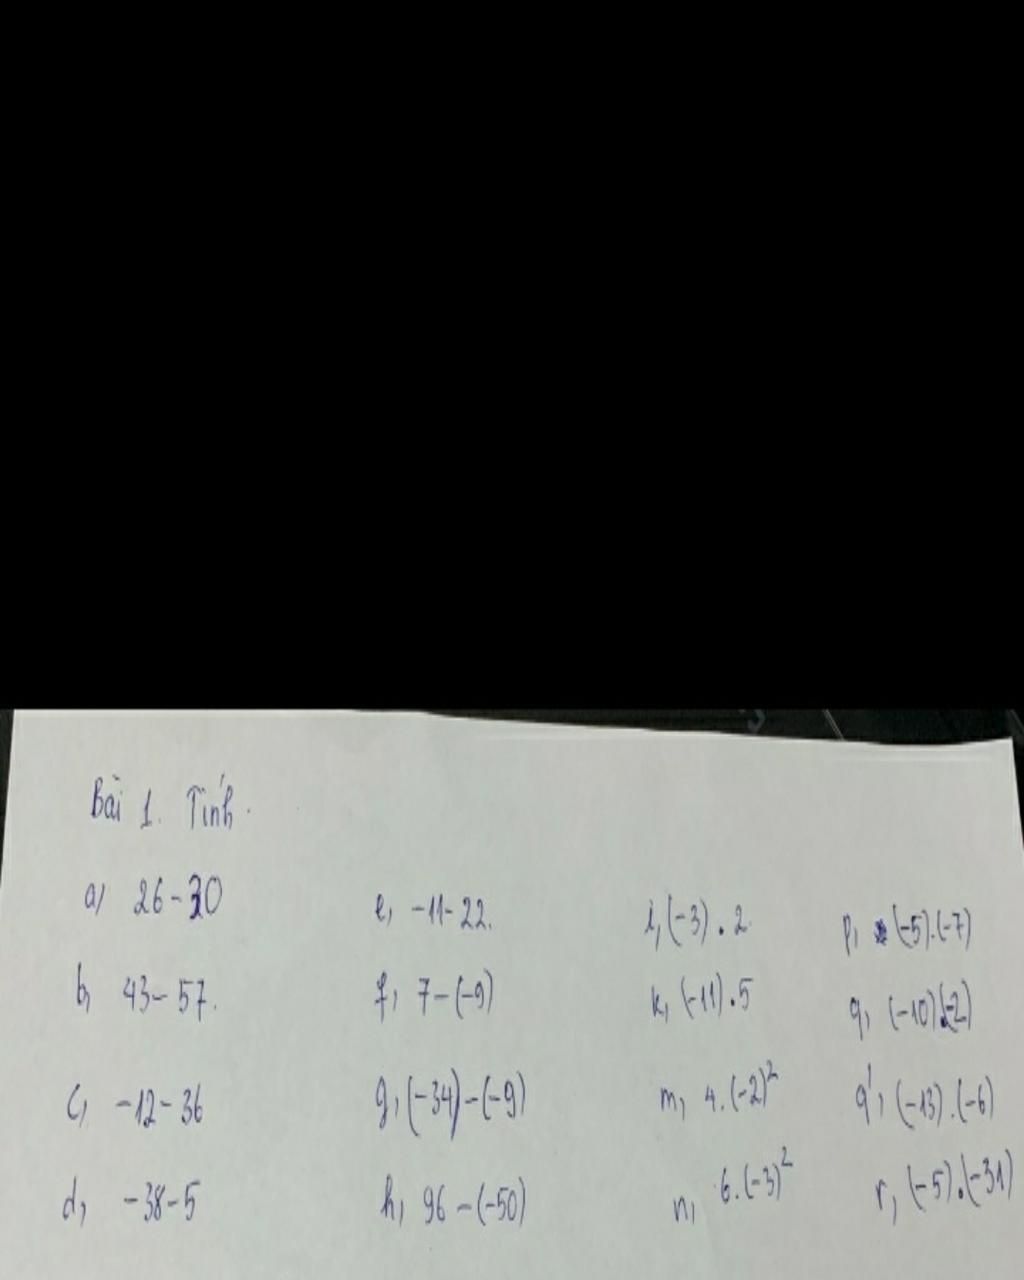 Bài 1. Tính.
a) 26-30
b, 43-57.
c, -12-36
d, -38-5
e, -11-22.
f, 7-(-9)
g, (-34)-(-9)
h, 96-(-50)
i, (-3).2
k, (-11).5
m, 4.(-2)²
n, 6.(-3)²
p, (-5).(-7)
q, (-10).(-2)
q', (-13).(-6)
r, (-5).(-31)